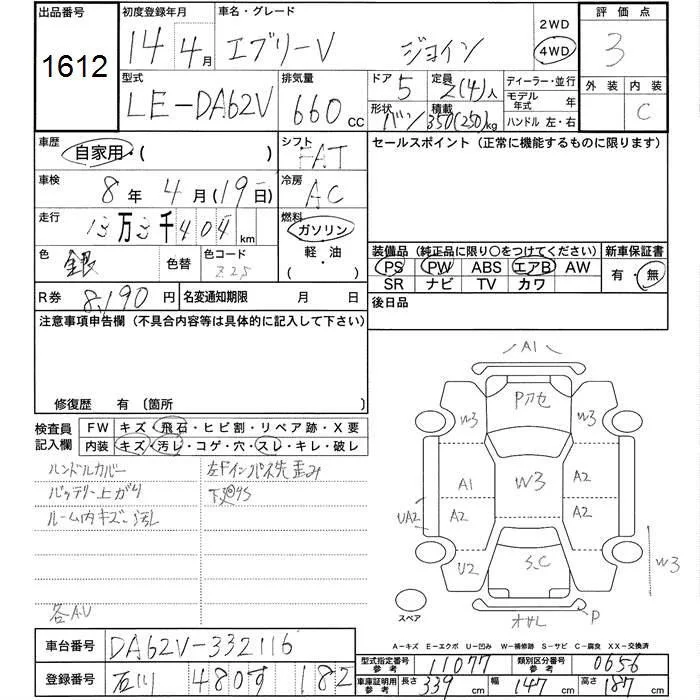 出品番号 初度登録年月 車名・グレード 2WD 評価点
1612 14年 4月 エブリーV ジョイン 4WD 3
型式 排気量 ドア 5 定員 2(4)人 ディーラー・並行 外装 内装
LE-DA62V 660cc 形状 バン 積載 350(250)kg モデル年式 年 C
ハンドル 左・右
車歴 自家用・( ) シフト FAT セールスポイント (正常に機能するものに限ります)
車検 8年 4月 (19日) 冷房 AC
走行 13万3千404km 燃料 ガソリン
色 銀 色替 色コード Z2S 軽・油 ( ・ )
装備品 (純正品に限り○をつけてください) 新車保証書
PS PW ABS エアB AW 有・無
SR ナビ TV カワ
R券 8,190円 名変通知期限 月 日 後日品
注意事項申告欄 (不具合内容等は具体的に記入して下さい)
修復歴 有 〔箇所
検査員記入欄 FW キズ・飛石・ヒビ割・リペア跡・X要
内装 キズ・汚レ・コゲ・穴・スレ・キレ・破レ
ハンドルカバー 左Fインパネ先歪み
バッテリー上がり
ルーム内キズ・汚レ
各A.U
A1
Pカセ
W3 W3
A1 W3 A2
UA2 A2 A2
U2 S.C W3
スペア P
A-キズ E-エクボ U-凹み W-補修跡 S-サビ C-腐食 XX-交換済
車台番号 DA62V-332116 型式指定番号 参考 11077 類別区分番号 参考 0656
登録番号 石川 480す 182 車庫証明用参考 長さ 339cm 幅 147cm 高さ 187cm